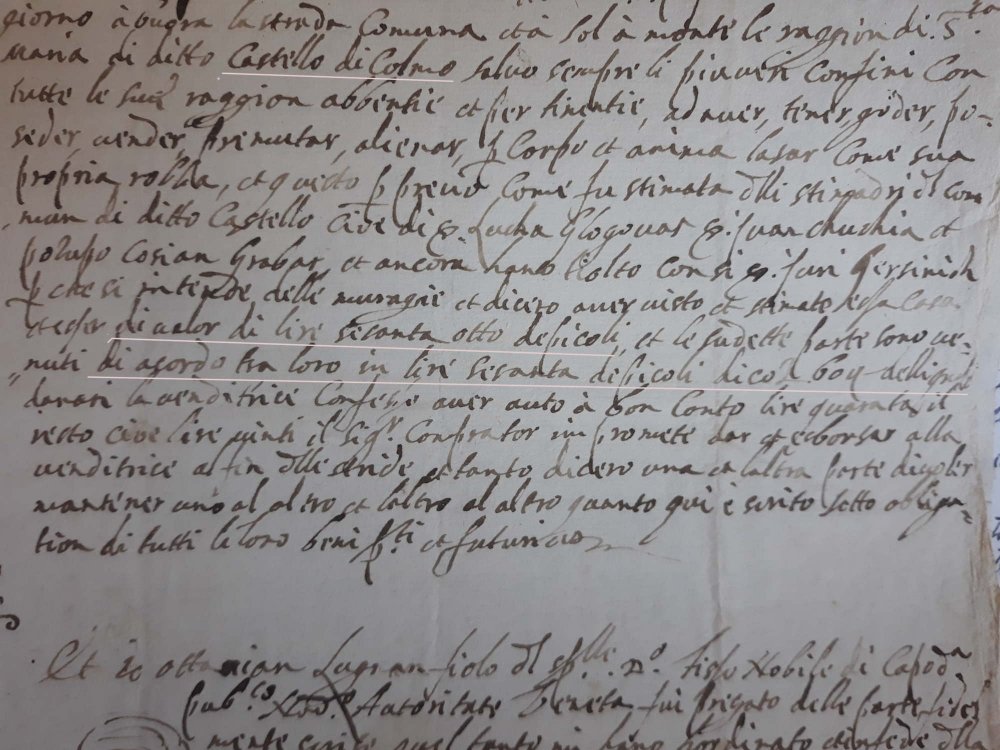 giorno à bugra la strada Comuna et à sol à monte le raggion di S.ta
Maria di ditto Castello di Colmo salvo sempre li piu veri Confini Con
tutte le sue raggion abbentie et per tinentie, ad aver, tener, goder, po-
seder, vender, premutar, alienar, p Corpo et anima lasar Come sua
propria robba, et questo p precio Come fu stimata dlli stimadri dl com
mun di ditto Castello cioe di s. Lucha Glogovaz s. Juan chuchia et
polupo Cosian Grabar, et ancora hano tiolto Con si s. Juri Gersinich
p che si intende delle muragie et dicero aver visto et stimato essa Casa
et esser di valor di lire sesanta otto de picoli, et le sudette parte sono ve-
nuti di acordo tra loro in lire sesanta de picoli dico 60
danari la venditrice Confessa aver auto à bon Conto lire quaranta, il
resto cioe lire vinti il sigr. Comprator im promete dar et esborsar alla
venditrice al fin dlle stride et tanto dicero una et l'altra parte di voler
mantener uno al altro et l'altro al altro quanto qui è scrito sotto obliga-
tion di tutti li loro beni p.ti et futuri
Et io Ottavian Lugnan fiolo dl sp.lle Nobile di Capod.a
pub.co Autoritate Veneta fui pregato delle parte fidel
mente scrisse quel tanto mi hano hordinato